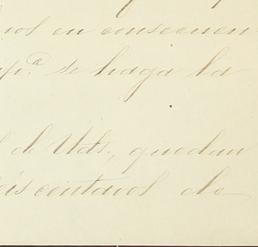 en consecuen
se haga la
de Uds., quedan
centavos de